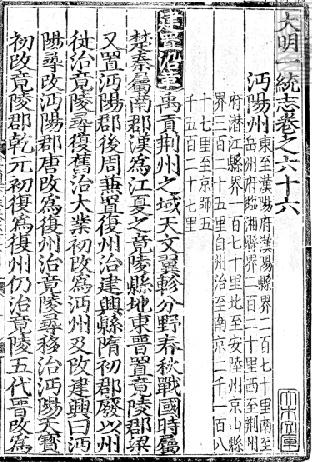 大明一統志卷之六十六
沔陽州
東至漢陽府漢陽縣界一百七十里南至
岳州府臨湘縣界二百二十里西至荊州
府潛江縣界一百七十里北至安陸州京山縣
界三百二十五里自州治至南京二千一百八
十七里至京師五
千五百二十七里
建置沿革禹貢荊州之域天文翼軫分野春秋戰國時屬
楚秦屬南郡漢爲江夏之竟陵縣地東晉置竟陵郡梁
又置沔陽郡後周兼置復州治建興縣隋初郡廢以州
徙治竟陵尋復舊治大業初改爲沔州及改建興曰沔
陽尋改沔陽郡唐改爲復州治竟陵尋移治沔陽天寶
初改竟陵郡乾元初復爲復州仍治竟陵五代晉改爲